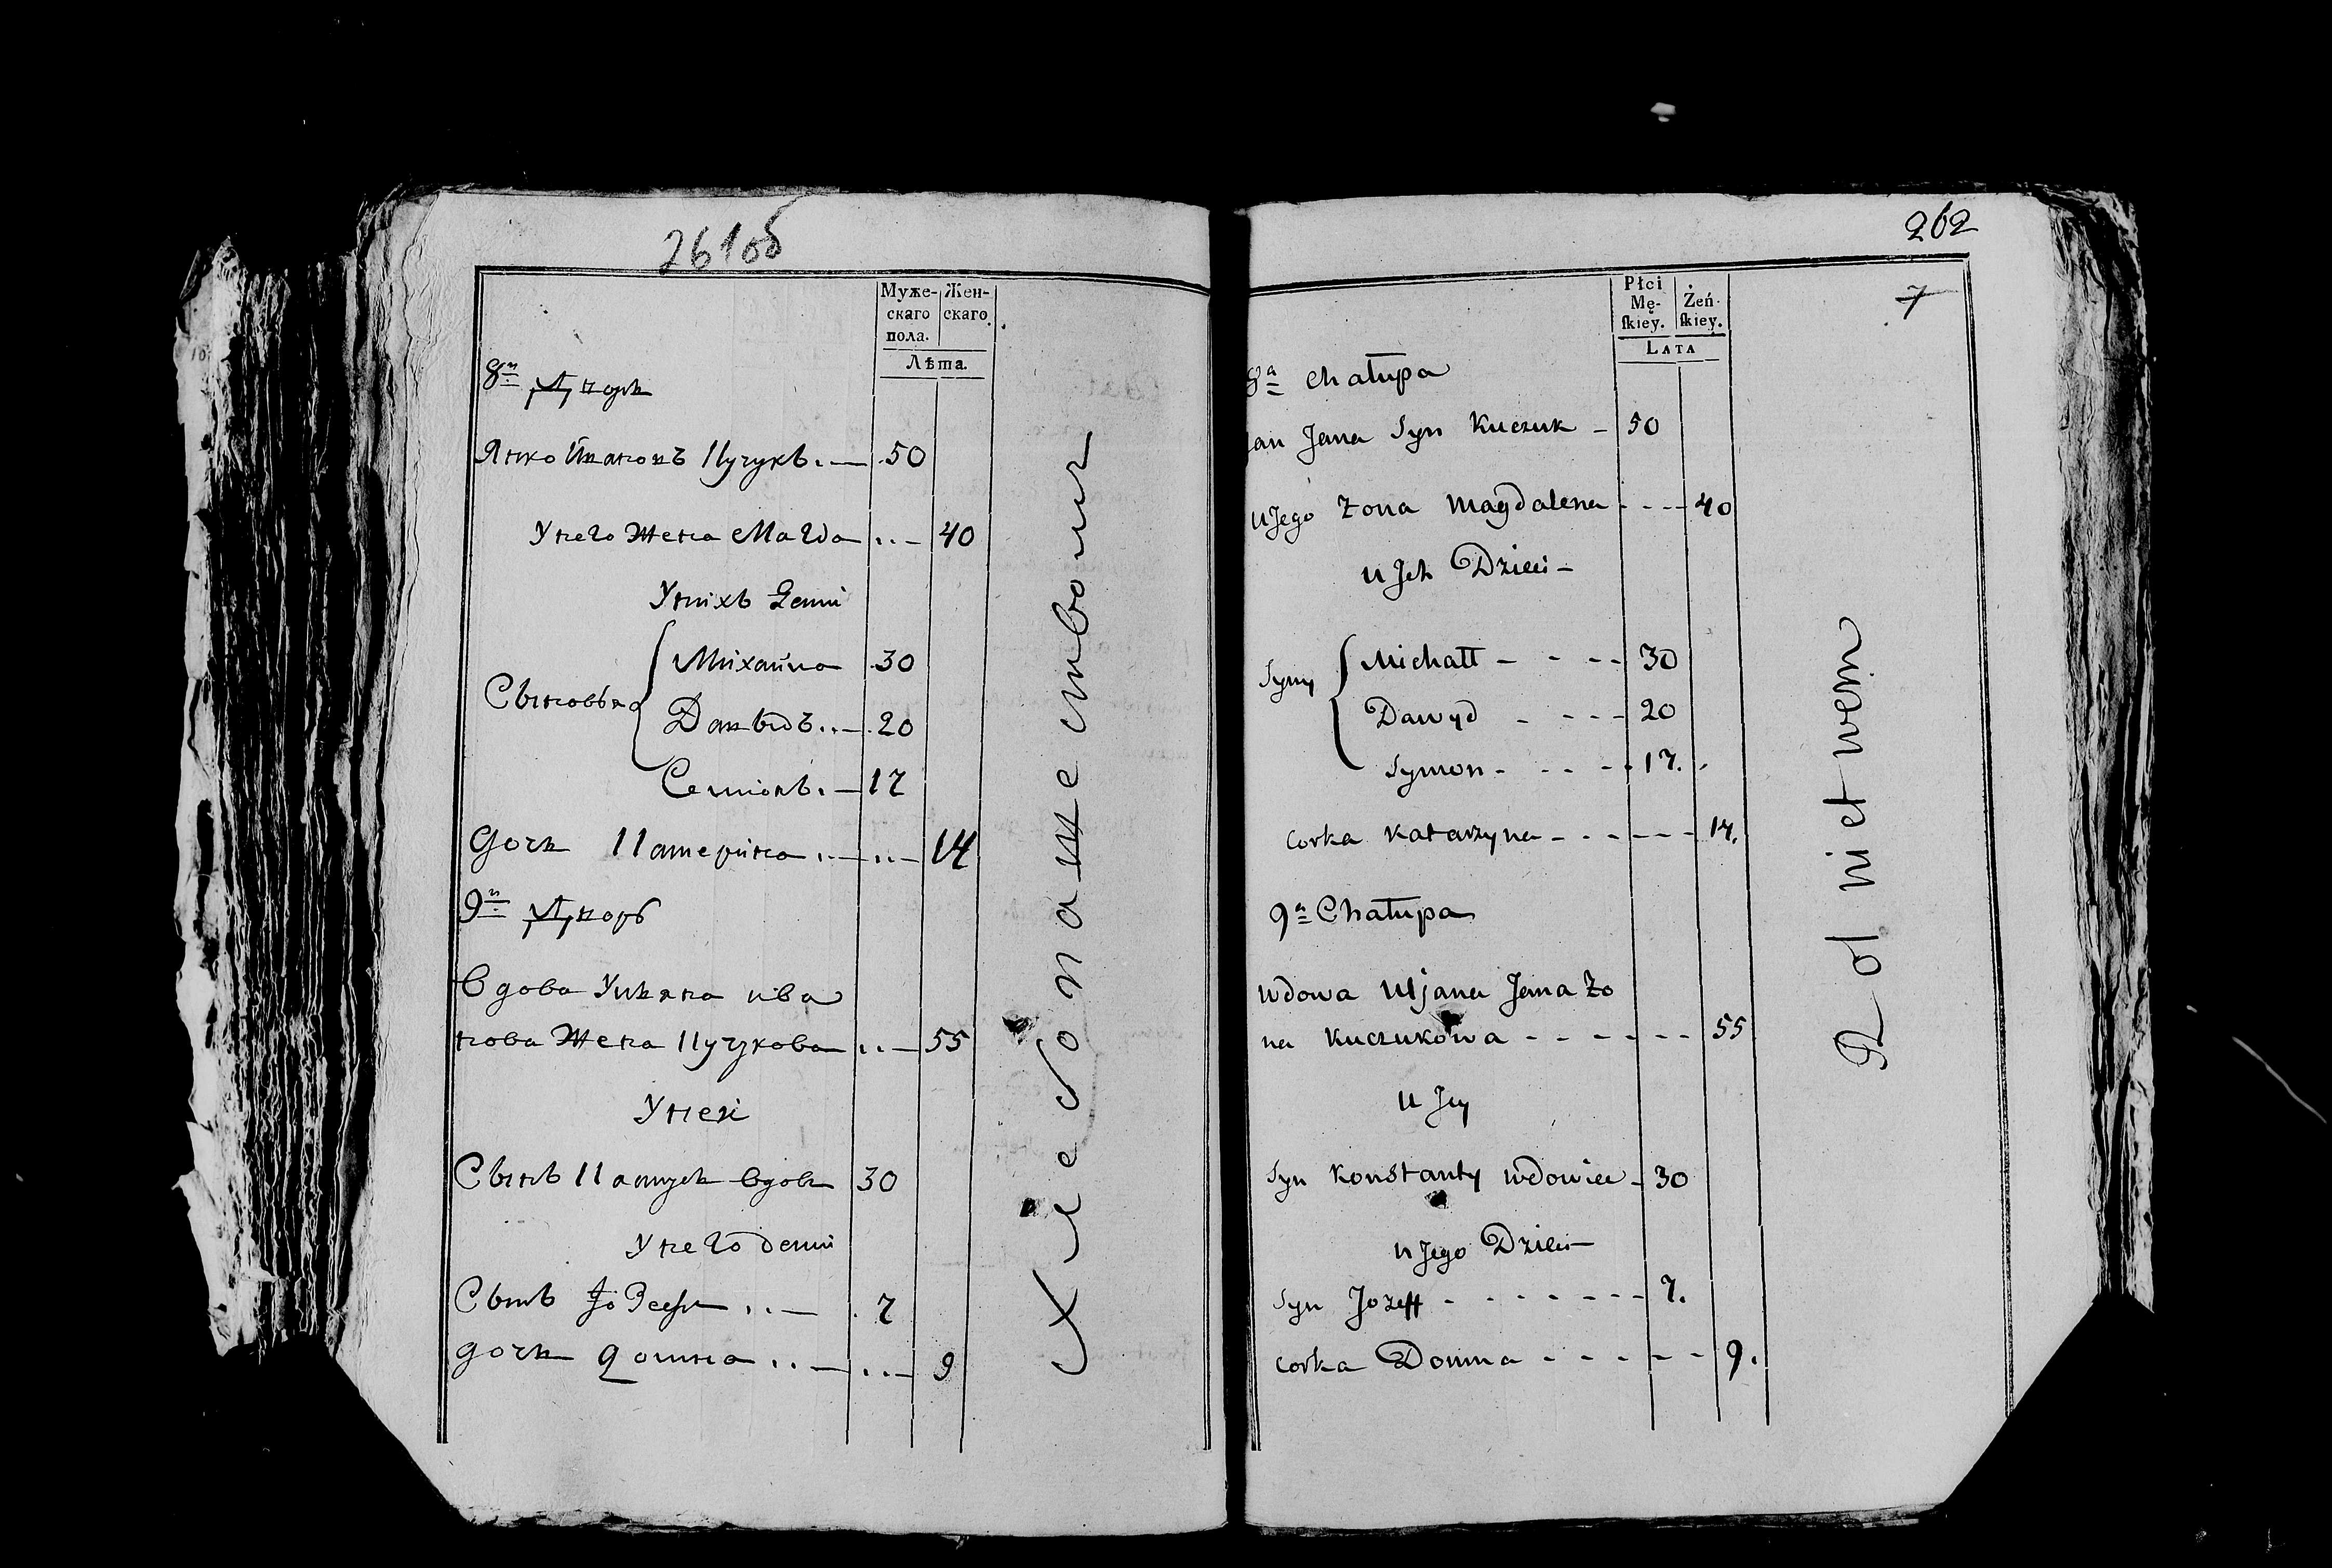 261об
Муже-
скаго
пола.
Жен-
скаго.
Лѣта.
8й Дворъ
Янко Ивановъ Кучукъ 50
У него жена Магда 40
У нихъ дети
Сыновья
Михайла 30
Давыдъ 20
Семіонъ 17
дочь Катерина 14
9й Дворъ
Вдова Уляна ива
нова жена Кучукова 55
У неи
Сынъ Костусь вдовъ 30
У него дети
Сынъ Іозефъ 7
дочь домна 9
Хлебопашествомъ
262
7
Płci
Mę-
skiey.
Żeń-
skiey.
LATA
8a Chałupa
Jan Jana Syn Kuczuk - 50
u Jego Zona Magdalena - - - 40
u Jch Dzieci -
Syny
Michałł - - - - 30
Dawyd - - - - 20
Symon - - - - 17.
Corka Katarzyna - - - - - - 14.
9a Chałupa
Wdowa Uljana Jana Żo
na Kuczukowa - - - - - - 55
u Jey
Syn Konstanty wdowiec - 30
u Jego Dzieci
Syn Jozeff - - - - - - - 7.
Corka Domna - - - - - 9.
Rolnictwem